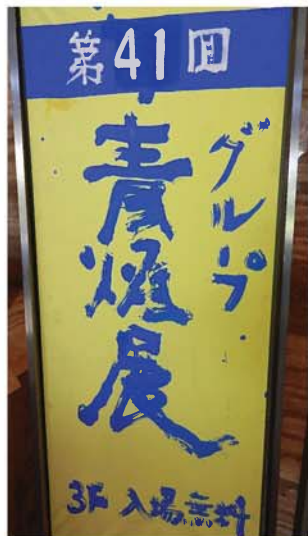 第41回
グループ
青焔展
3F 入場無料